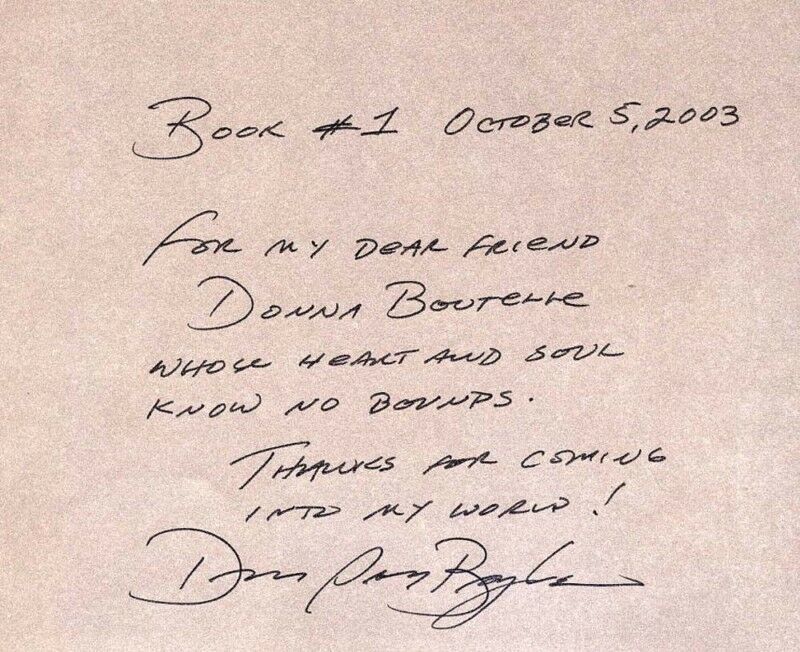 Book #1 October 5, 2003
For my dear friend
Donna Boutelle
whose heart and soul
know no bounds.
Thanks for coming
into my world!